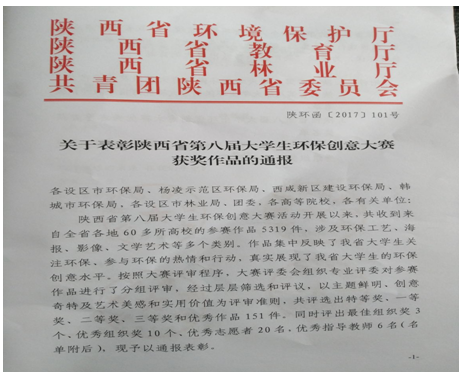 陕西省环境保护厅
陕西省教育厅
陕西省林业厅
共青团陕西省委员会
陕环函〔2017〕101号
关于表彰陕西省第八届大学生环保创意大赛
获奖作品的通报
各设区市环保局、杨凌示范区环保局、西咸新区建设环保局、韩
城市环保局、各设区市林业局、团委，各高等院校，各有关单位：
陕西省第八届大学生环保创意大赛活动开展以来，共收到来
自全省各地60多所高校的参赛作品5319件，涉及环保工艺、海
报、影像、文学艺术等多个类别，作品集中反映了我省大学生关
注环保、参与环保的热情和行动，真实展现了我省大学生的环保
创意水平。按照大赛评审程序，大赛评委会组织专业评委对参赛
作品进行了分组评审，经过层层筛选和评议，以主题鲜明、创意
奇特及艺术美感和实用价值为评审准则，共评选出特等奖、一等
奖、二等奖、三等奖和优秀作品151件，同时评出最佳组织奖3
个、优秀组织奖10个、优秀志愿者20名，优秀指导教师6名（名
单附后），现予以通报表彰。
-1-